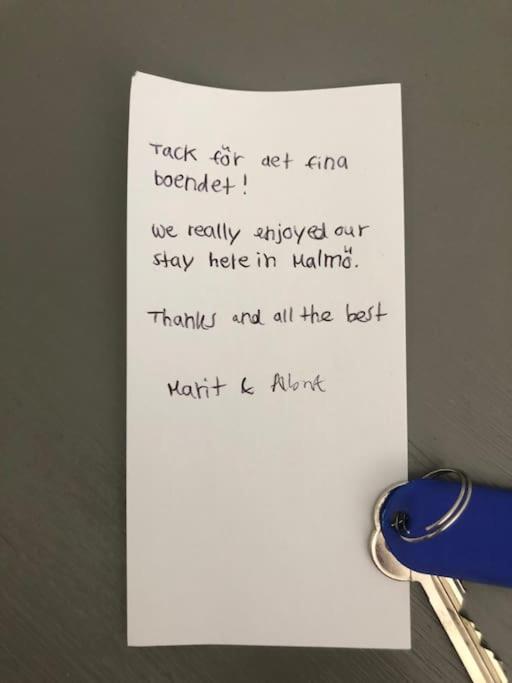 Tack för det fina
boendet!
We really enjoyed our
stay here in Malmö.
Thanks and all the best
Marit &